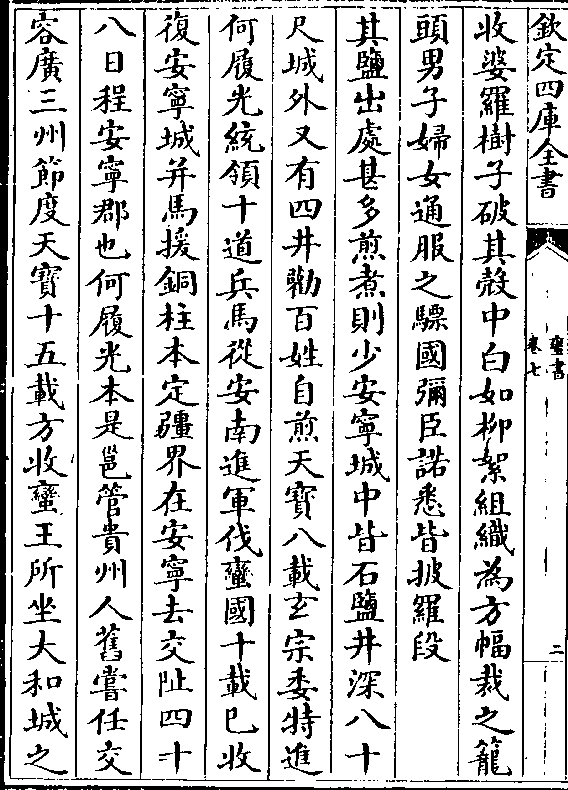 欽定四庫全書
蠻書
卷七
二
收娑羅樹子破其殼中白如柳絮組織為方幅裁之籠
頭男子婦女通服之驃國彌臣諾悉皆披羅段
其鹽出處甚多煎煮則少安寧城中皆石鹽井深八十
尺城外又有四井勸百姓自煎天寶八載玄宗委特進
何履光統領十道兵馬從安南進軍伐蠻國十載已收
復安寧城并馬援銅柱本定疆界在安寧去交阯四十
八日程安寧郡也何履光本是邕管貴州人舊嘗任交
容廣三州節度天寶十五載方收蠻王所坐大和城之